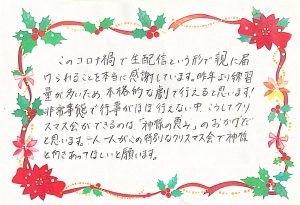 このコロナ禍で生配信という形で親に届
けられることを本当に感謝しています。昨年より練習
量が多いため、本格的な劇で行えると思います!
非常事態で行事がほぼ行えない中、こうしてクリ
スマス会ができるのは「神様の恵み」のおかげだ
と思います。一人一人がこの特別なクリスマス会で神様
と向きあってほしいと願います。